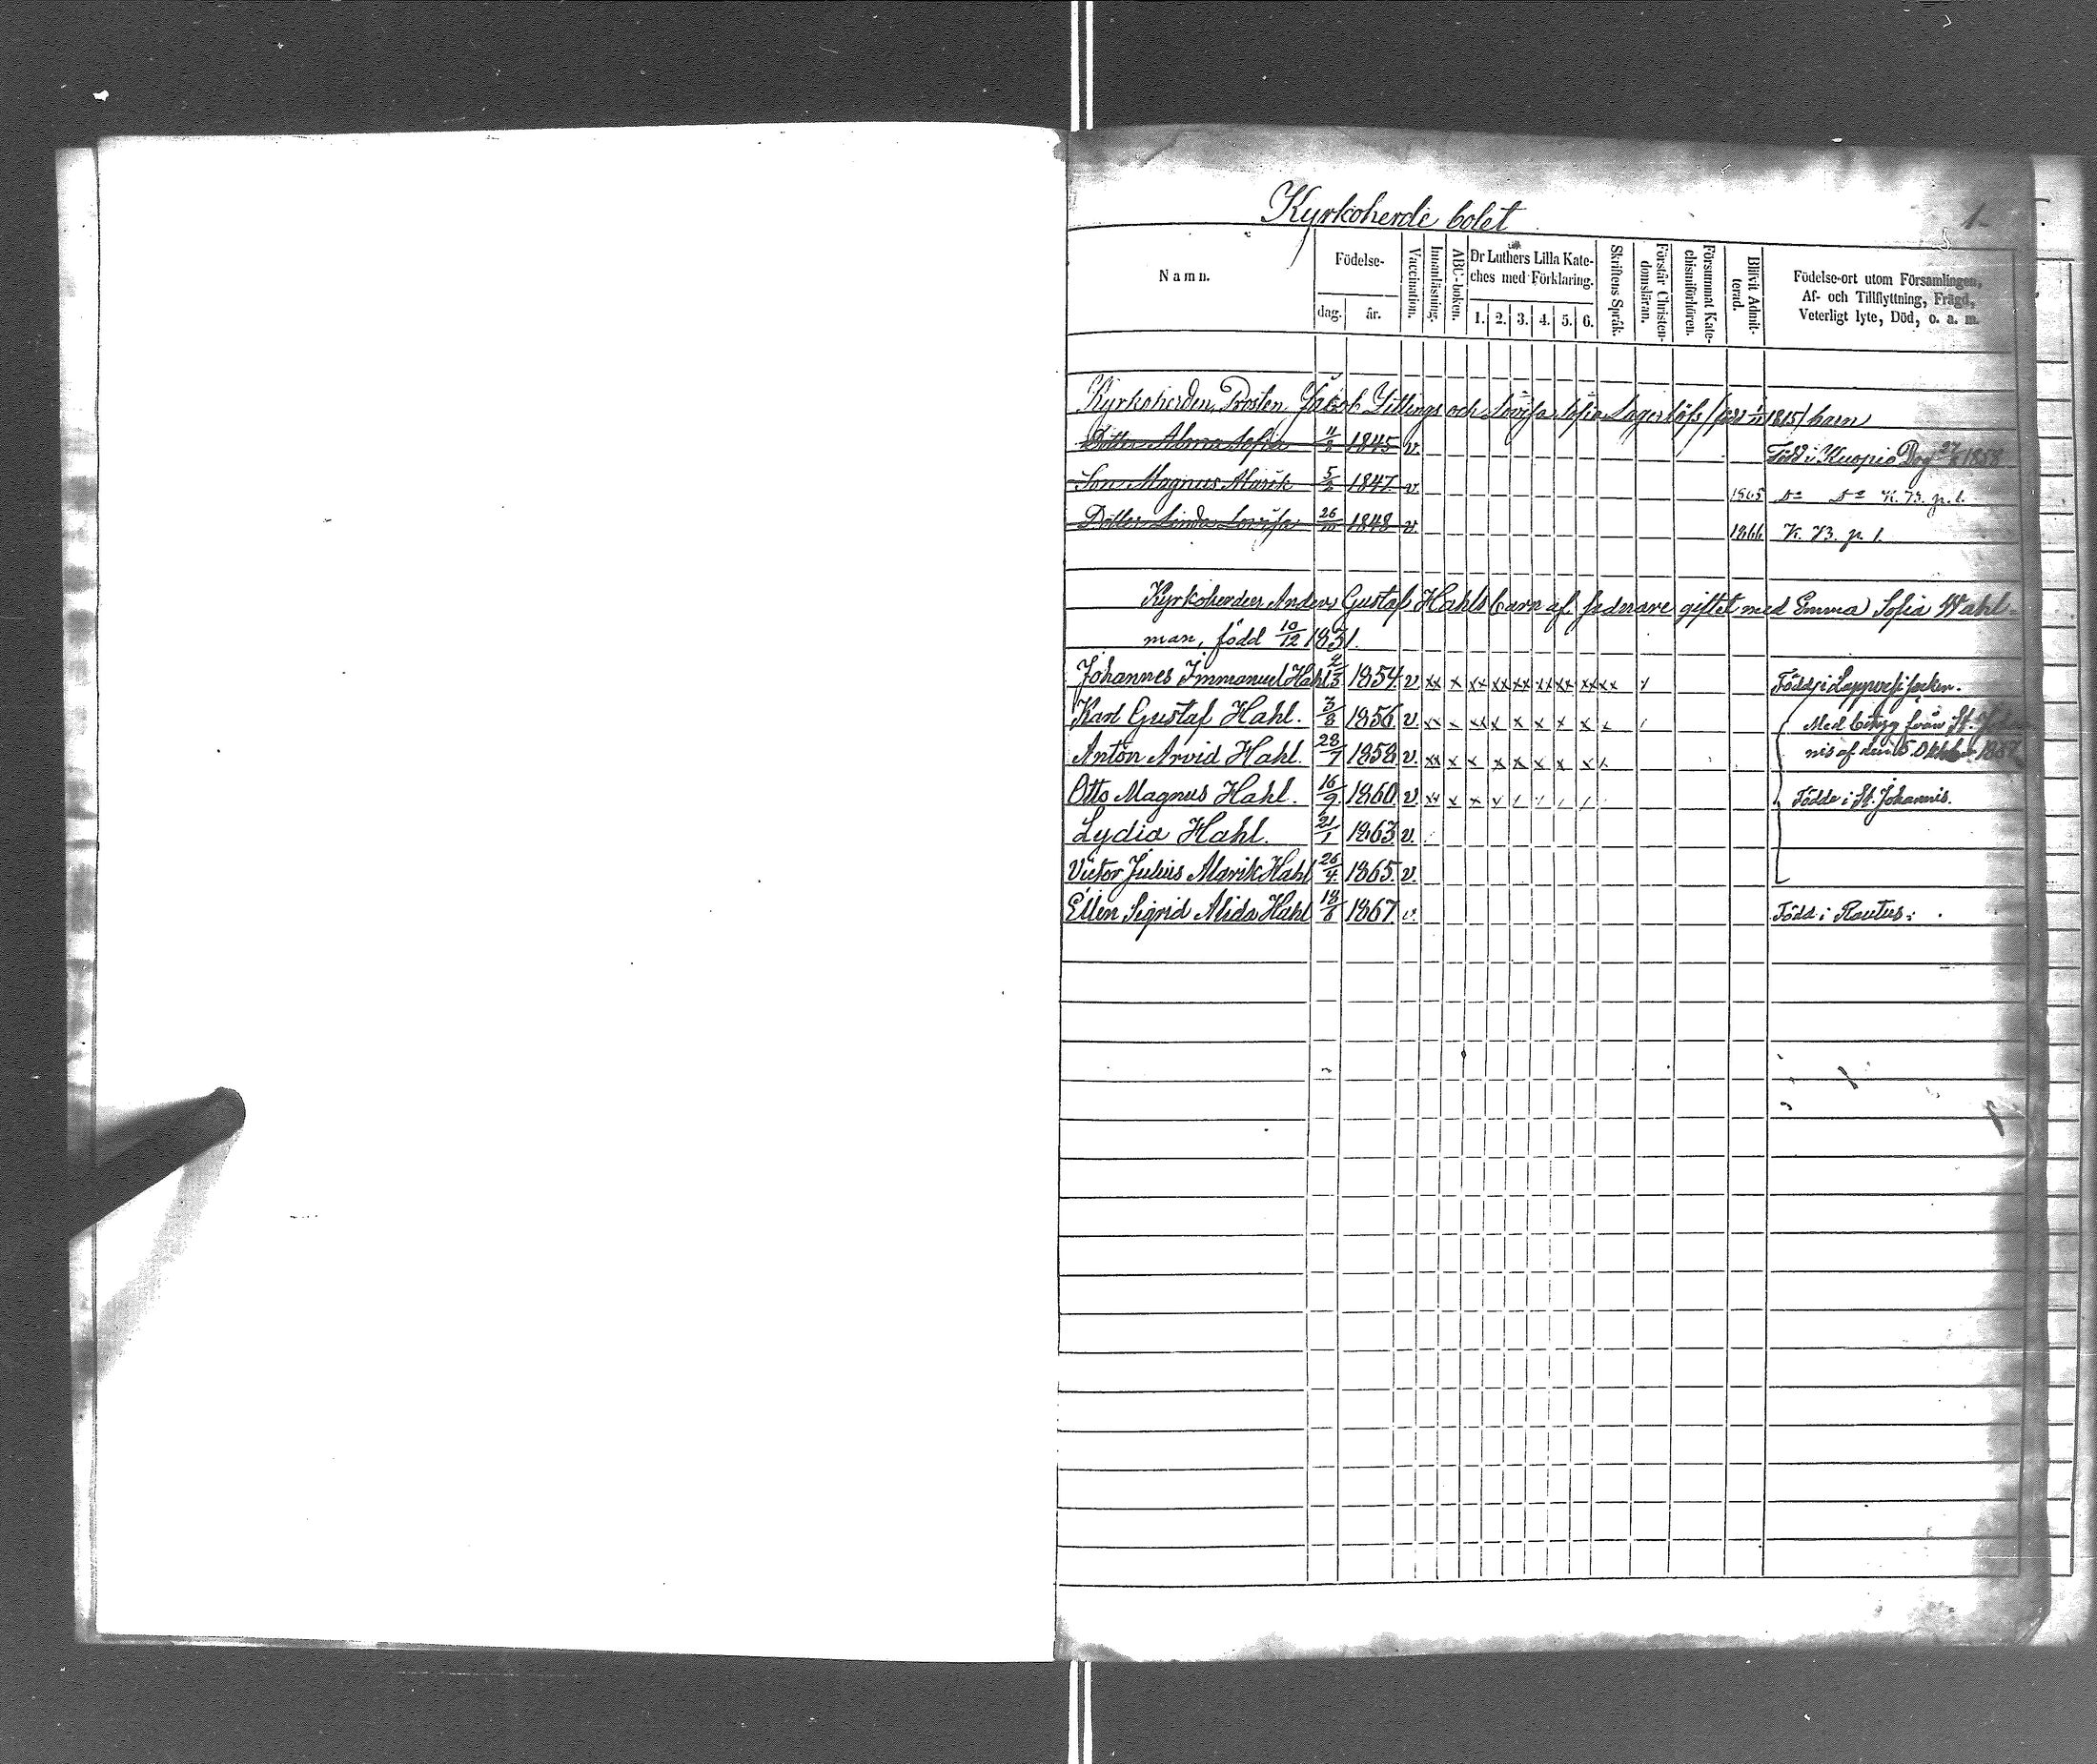 Kyrkoherde bolet
1
Namn.
Födelse-
dag.
år.
Vaccination.
Innanläsning.
ABC-boken.
Dr Luthers Lilla Kate-
ches med Förklaring.
1. 2. 3. 4. 5. 6.
Skriftens Språk.
Förstår Christen-
domsläran.
Försummat Kate-
chismiförhören.
Blifvit Admit-
terad.
Födelse-ort utom Församlingen,
Af- och Tillflyttning, Frägd,
Veterligt lyte, Död, o. a. m.
Kyrkoherden, Prosten Jakob och Lovisa Sofia 1815/ barn
Dotter Sofia 11 1845 v. Född i Kuopio 1858
Son Magnus Alarik 5/2 1847 v. 1865 K. B. p. 1.
Dotter Linda Lovisa 26/10 1848 v. 1866 K. B. p. 1.
Kyrkoherden Anders Gustaf Hahls barn af sednare giftet med Emma Sofia Wahl-
man, född 10/12 1831.
Johannes Immanuel Hahl 2/3 1854. v. xx x xx xx xx xx xx xx xx Född i socken.
Karl Gustaf Hahl. 3/8 1856. v. xx x xx x x x x x Med betyg från St.
Anton Arvid Hahl. 28/7 1858. v. xx x x x x x x x nis af den 5 Oktober 1867
Otto Magnus Hahl. 16/9 1860. v. xx x x Födde i St. Johannis.
Lydia Hahl. 21/1 1863. v.
Victor Julius Alarik Hahl 26/4 1865. v.
Ellen Sigrid Alida Hahl 18/6 1867. v. Född i Rautus.